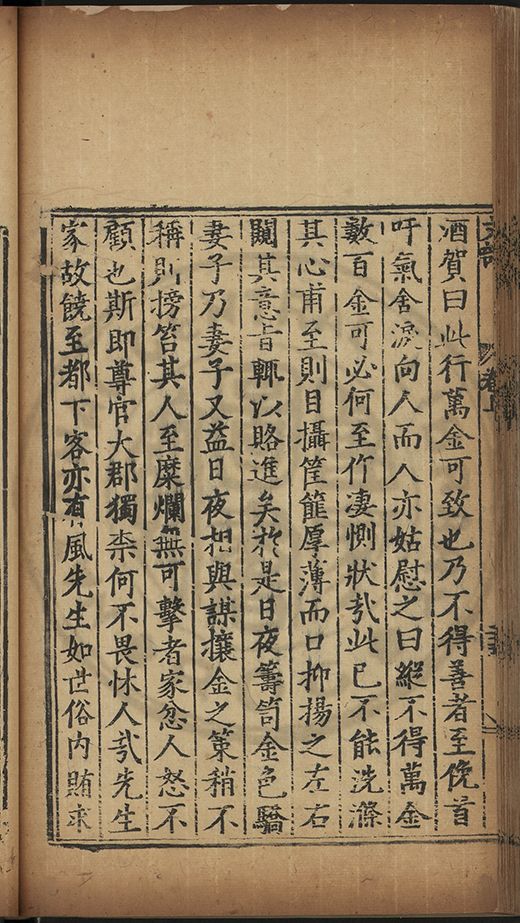 酒賀曰此行萬金可致也乃不得善者至俛首
吁氣含淚向人而人亦姑慰之曰縱不得萬金
數百金可必何至作淒惻狀㢤此已不能洗滌
其心甫至則目攝筐篚厚薄而口抑揚之左右
闚其意旨輒以賂進矣於是日夜籌笥金色驕
妻子乃妻子又益日夜相與謀攘金之策稍不
稱則搒笞其人至糜爛無可擊者家忿人怒不
顧也斯即尊官大郡獨柰何不畏怵人㢤先生
家故饒至都下客亦有風先生如世俗内賄求